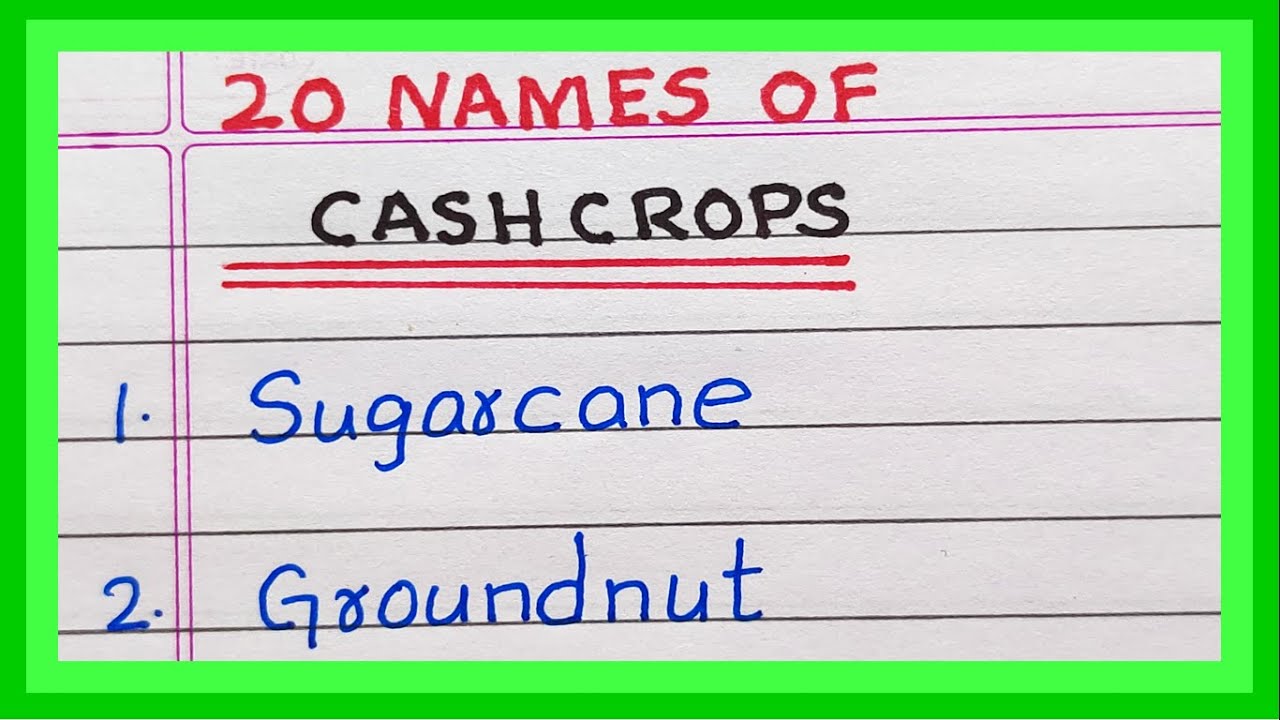 20 NAMES OF
CASH CROPS
1. Sugarcane
2. Groundnut